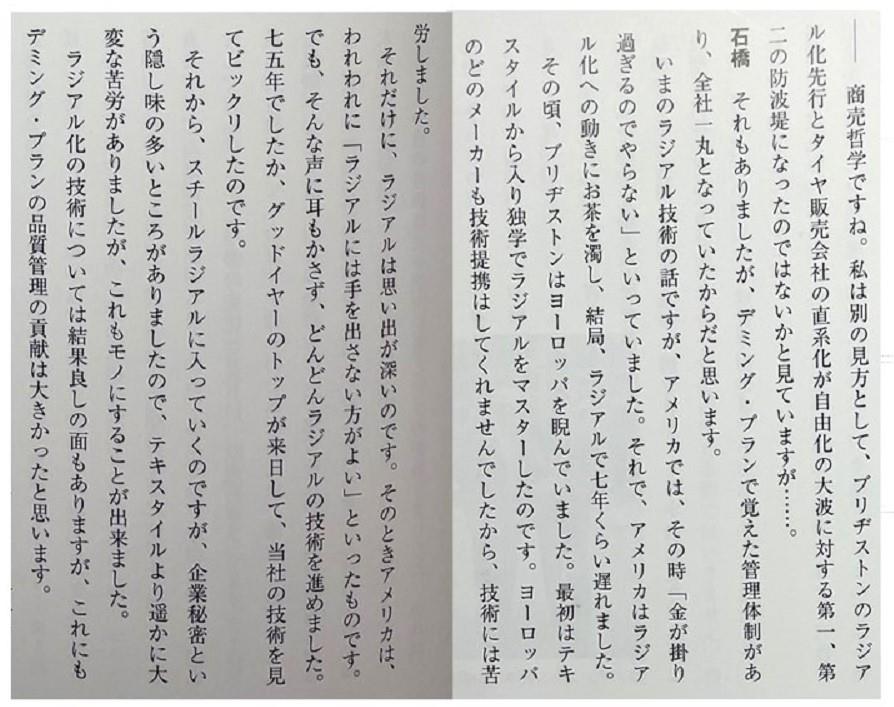 ── 商売哲学ですね。私は別の見方として、ブリヂストンのラジア
ル化先行とタイヤ販売会社の直系化が自由化の大波に対する第一、第
二の防波堤になったのではないかと見ていますが……。
石橋　それもありましたが、デミング・プランで覚えた管理体制があ
り、全社一丸となっていたからだと思います。
いまのラジアル技術の話ですが、アメリカでは、その時「金が掛り
過ぎるのでやらない」といっていました。それで、アメリカはラジア
ル化への動きにお茶を濁し、結局、ラジアルで七年くらい遅れました。
その頃、ブリヂストンはヨーロッパを睨んでいました。最初はテキ
スタイルから入り独学でラジアルをマスターしたのです。ヨーロッパ
のどのメーカーも技術提携はしてくれませんでしたから、技術には苦
労しました。
それだけに、ラジアルは思い出が深いのです。そのときアメリカは、
われわれに「ラジアルには手を出さない方がよい」といったものです。
でも、そんな声に耳もかさず、どんどんラジアルの技術を進めました。
七五年でしたか、グッドイヤーのトップが来日して、当社の技術を見
てビックリしたのです。
それから、スチールラジアルに入っていくのですが、企業秘密とい
う隠し味の多いところがありましたので、テキスタイルより遥かに大
変な苦労がありましたが、これもモノにすることが出来ました。
ラジアル化の技術については結果良しの面もありますが、これにも
デミング・プランの品質管理の貢献は大きかったと思います。